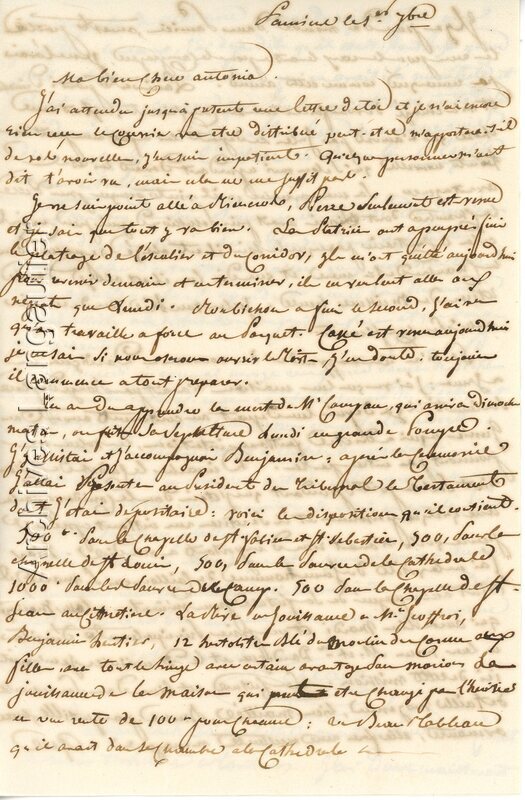 Pamiers le 1er 7bre
Ma bien chere antonia.
J'ai attendu jusqu'à présent une lettre de toi et je n'ai encore
rien reçu le courrier va etre distribué peut-etre m'apportera-t-il
de vos nouvelles, j'en suis impatient. Quelques personnes m'ont
dit t'avoir vu, mais cela ne me suffit pas.
Je ne suis point allé a Pierre Seulement est venu
et je sais que tout y va bien. La ont a peu près fini
le platrage de l'escalier et du Corridor, ils m'ont quitté aujourd'hui
pour revenir demain et terminer, ils ne veulent aller aux
que Lundi. Monbichon a fini le second, j'ai vu
qu'on travaille a force au Parquet. Cassé est venu aujourd'hui
je ne sais si nous ouvrir le j'en doute, toujours
il commence a tout preparer.
Tu as du apprendre la mort de Mr. qui arriva dimanche
matin, on fit sa Sepulture Lundi en grande Pompe.
J'y assistai et j'accompagnai Benjamin; après la Ceremonie
J'allai Presenter au President du Tribunal le Testament
dont j'étais depositaire: voici les dispositions qu'il contient.
500 pour la Chapelle de St. et St. Sebastien, 500, pour la
chapelle de St. Louis, 500, pour la de la Cathedrale
1000 pour les du Camp. 500 pour la Chapelle de St.
Jean au Cimetiere. La en jouissance a Mr. Joffroi,
Benjamin heritier, 12 hectolitres Blé du moulin du aux
filles, avec tout le linge avec certain avantage La
jouissance de la maison qui peut etre changé par l'heritier
en une rente de 100 pour Chacune; un Beau Tableau
qu'il avait dans sa Chambre a la Cathedrale
Archives Lergai